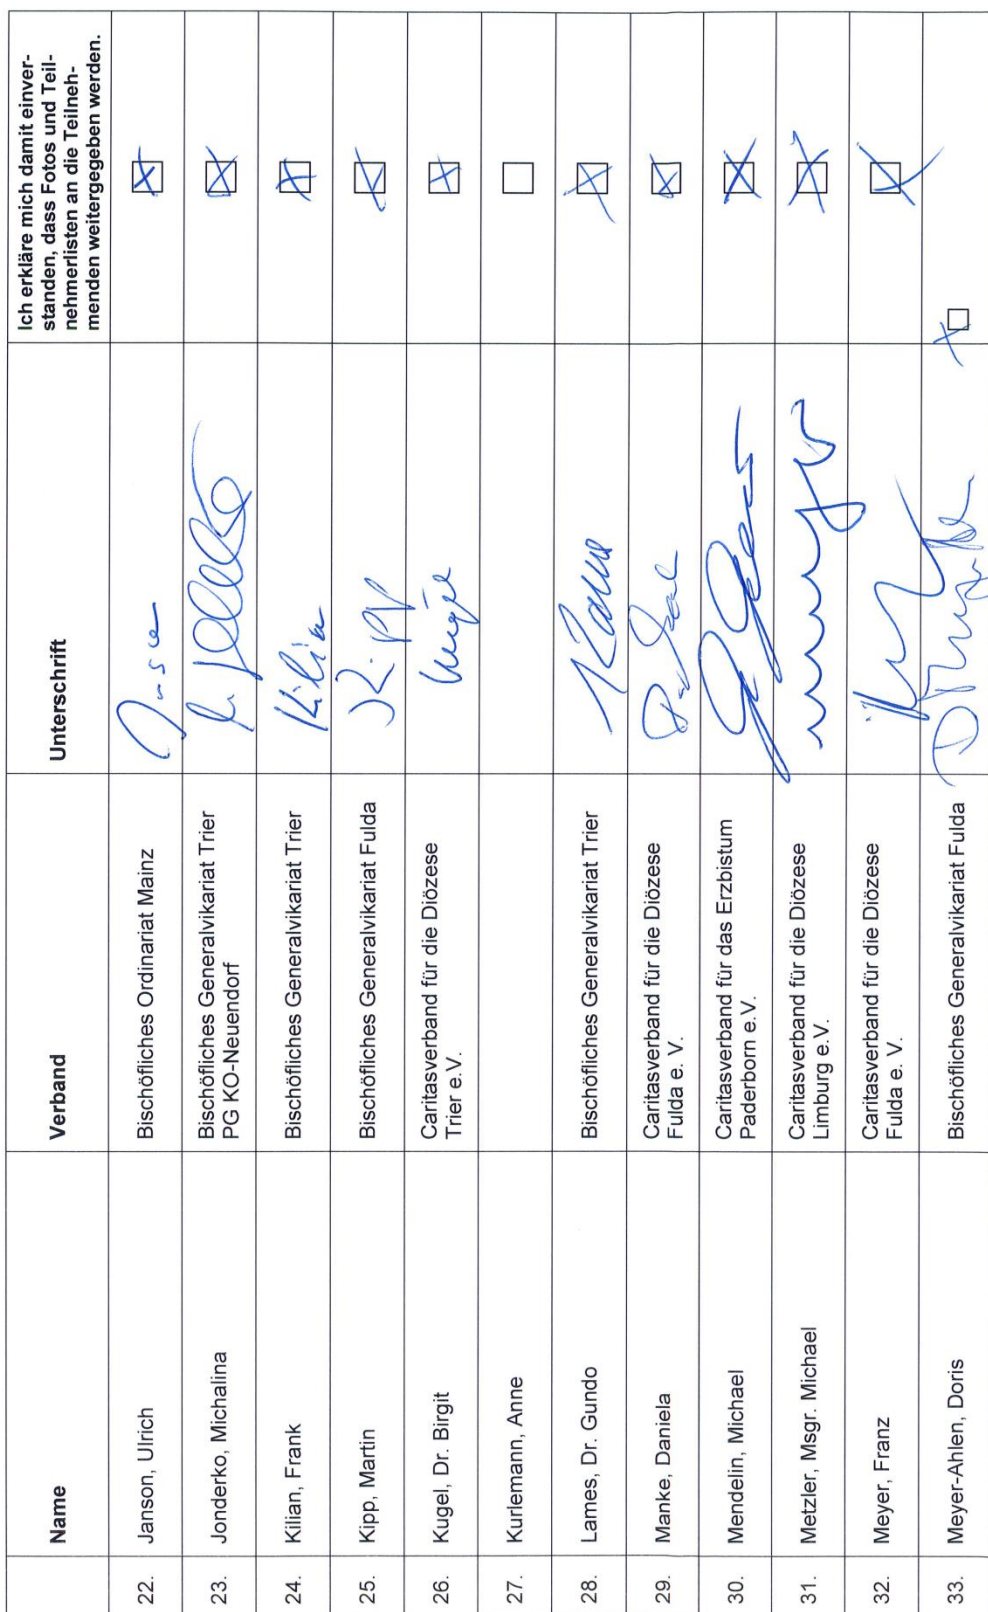 Name Verband Unterschrift Ich erkläre mich damit einver-
standen, dass Fotos und Teil-
nehmerlisten an die Teilneh-
menden weitergegeben werden.
22. Janson, Ulrich Bischöfliches Ordinariat Mainz
23. Jonderko, Michalina Bischöfliches Generalvikariat Trier
PG KO-Neuendorf
24. Kilian, Frank Bischöfliches Generalvikariat Trier Kilian
25. Kipp, Martin Bischöfliches Generalvikariat Fulda Kipp
26. Kugel, Dr. Birgit Caritasverband für die Diözese
Trier e.V.
27. Kurlemann, Anne
28. Lames, Dr. Gundo Bischöfliches Generalvikariat Trier
29. Manke, Daniela Caritasverband für die Diözese
Fulda e. V.
30. Mendelin, Michael Caritasverband für das Erzbistum
Paderborn e.V.
31. Metzler, Msgr. Michael Caritasverband für die Diözese
Limburg e.V.
32. Meyer, Franz Caritasverband für die Diözese
Fulda e. V.
33. Meyer-Ahlen, Doris Bischöfliches Generalvikariat Fulda